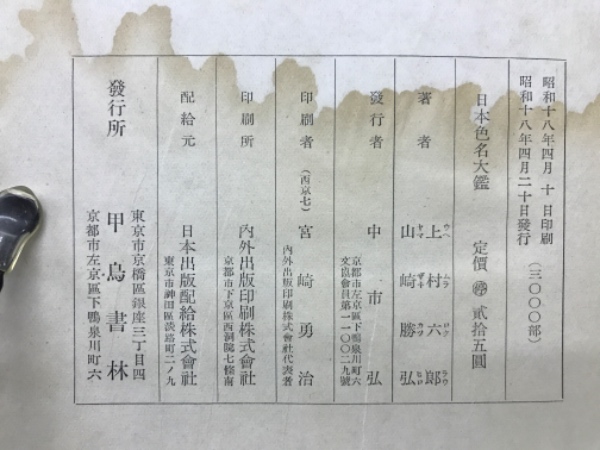 昭和十八年四月 十 日印刷
昭和十八年四月二十日發行
(三〇〇〇部)
日本色名大鑑 定價 停 貳拾五圓
著者
上村六郎
ウヘ ムラ ロク ラウ
山崎勝弘
ヤマ ザキ カツ ヒロ
發行者 中市弘
京都市左京區下鴨泉川町六
文協會員第一一〇〇二九號
印刷者 (西京七) 宮崎勇治
內外出版印刷株式會社代表者
印刷所 內外出版印刷株式會社
京都市下京區西洞院七條南
配給元 日本出版配給株式會社
東京市神田區淡路町二ノ九
發行所
東京市京橋區銀座三丁目四
甲鳥書林
京都市左京區下鴨泉川町六